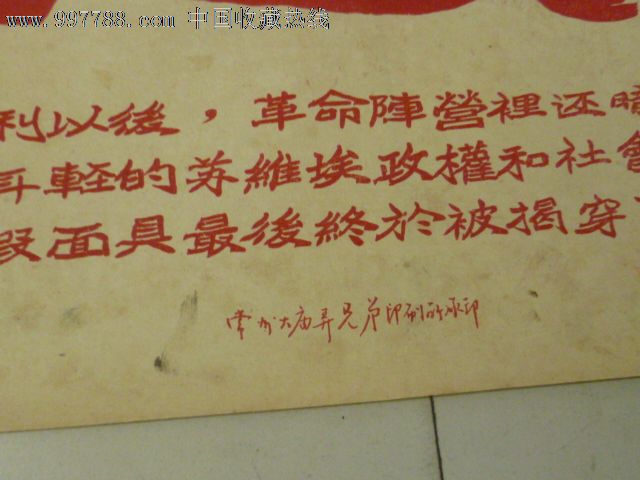 www.997788.com 中国收藏热线
利以後，革命陣營裡还暗
年輕的苏維埃政權和社會
假面具最後終於被揭穿
常州大庙弄兄弟印刷所承印